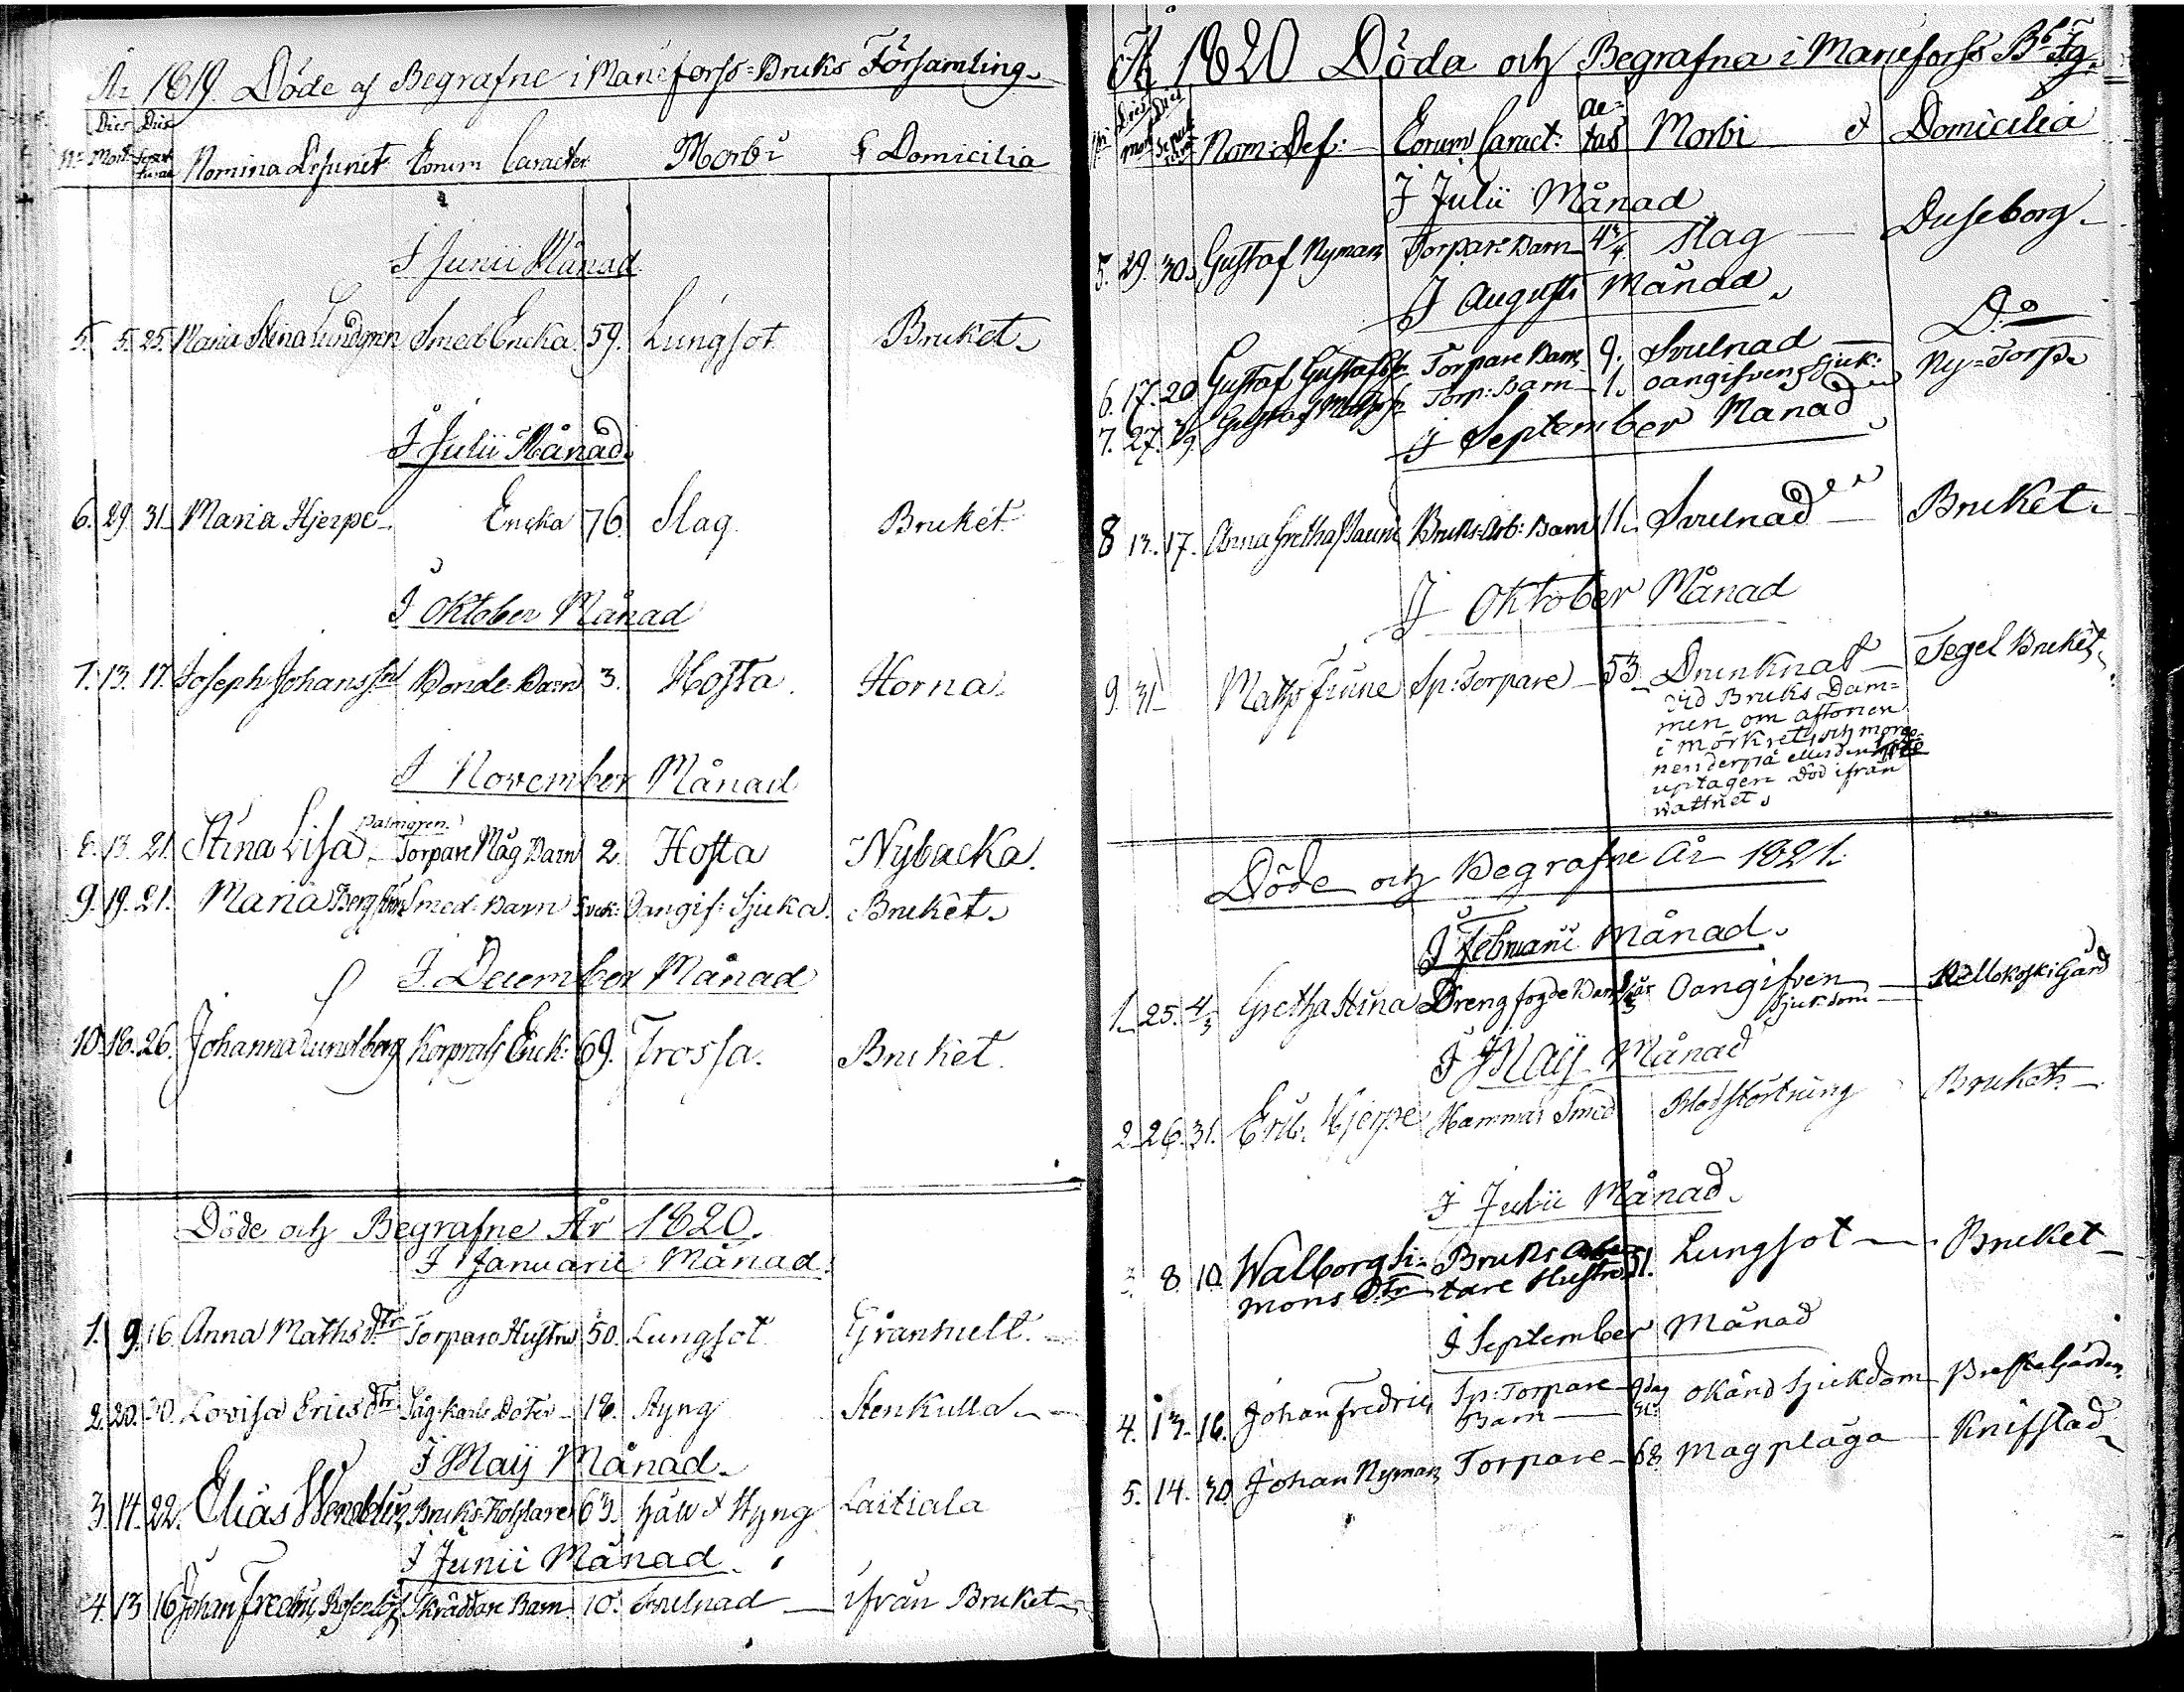 År 1819. Döde och Begrafne i Marieforss=Bruks Församling.
No Dies Mort: Dies Sepulturae Nomina Defunct: Eorum Caracter Morbi & Domicilia
I Junii Månad
5. 5. 25. Maria Stina Lundgren Smed Encka 59. Lungsot Bruket.
I Julii Månad.
6. 29. 31. Maria Hjerpe Encka 76. Slag. Bruket
I Oktober Månad
7. 13. 17. Joseph Johansson Bonde-Barn 3. Hosta. Horna.
I November Månad
Palmgren.
8. 13. 21. Stina Lisa Torpare Måg Barn 2. Hosta Nybacka.
9. 19. 21. Maria Bergström Smed-Barn 5 veck: Oangif: Sjuka. Bruket.
I December Månad
10. 16. 26. Johanna Lundberg Korprals Enck: 69. Trossa. Bruket.
Döde och Begrafne År 1820.
I Januarii Månad.
1. 9. 16. Anna Mathsdtr Torpare Hustru 50. Lungsot
2. 20. 30. Lovisa Ericsdtr Såg-Karls Doter 18. Styng Stenkulla
I Maij Månad.
3. 14. 22. Elias Bruks-Kolare 63. håll & Styng Laitiala
I Junii Månad.
4. 13 16 Johan Fredric Rosenlöf Skräddare Barn 10. Svulnad ifrån Bruket
År 1820 Döda och Begrafna i Marieforss Bks Fg.
No Dies Mort Dies Sepulturae Nom: Def: Eorum Caract: Aetas Morbi & Domicilia
I Julii Månad
5. 29. 30. Gustaf Nyman Torpare Barn 4 3/4 Slag Duseborg
I Augusti Månad.
6. 17. 20. Gustaf Gustafss: Torpare Barn 9. Svulnad Do
7. 27. 3/9. Gustaf Torp: Barn 1. oangifven sjuk: Ny=Torp
I September Månad
8 13. 17. Anna Gretha Bruks-Arb: Barn 11. Svulnad Bruket.
I Oktober Månad
9. 31. Maths Sp: Torpare 53. Drunknat Tegel Bruket.
vid Bruks Dam=
men om aftonen
i mörkret, och morgo-
nen derpå eller den
uptagen död ifrån
wattnet.
Döde och Begrafne År 1821.
I Februarii Månad.
1. 25. 4/3 Gretha Stina Drengfogde Barn Oangifven sjukdom Kellokoski Gård
I Maij Månad
2. 26. 31. Eric Hjerpe Hammar Smed Blodstörtning Bruket
I Julii Månad.
3. 8. 10. Walborg Si- Bruks Arbe- 51. Lungsot Bruket
mons Dtr tare Hustru
I September Månad
4. 13. 16. Johan Fredric Sp: Torpare 9 dag okänd Sjukdom Prestegården
Barn
5. 14. 30. Johan Nyman Torpare 68. Magplåga Knifstad